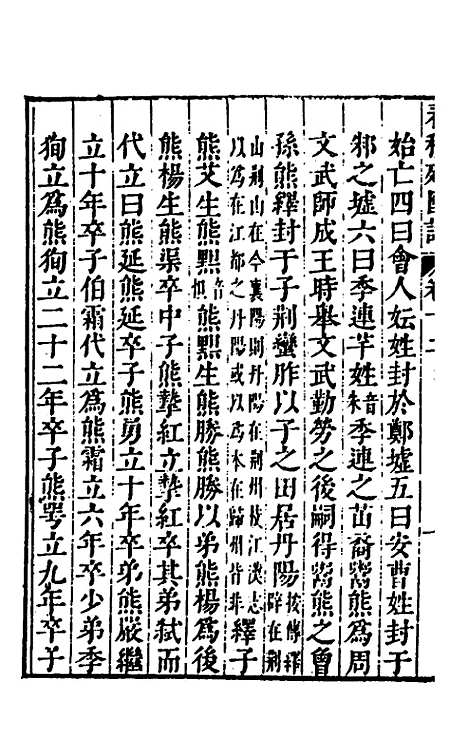 始亡四曰會人妘姓封於鄭墟五曰安曹姓封于
邾之墟六曰季連芊姓音朱季連之苗裔鬻熊為周
文武師成王時舉文武勤勞之後嗣得鬻熊之曾
孫熊繹封于子荆蠻胙以子之田居丹陽按傳繹辟在荆
山荆山在今襄陽則丹陽在荆州枝江漢志
以為在江都之丹陽或以為本在歸州皆非繹子
熊艾生熊䵣音怛熊䵣生熊勝熊勝以弟熊楊為後
熊楊生熊渠卒中子熊摯紅立摯紅卒其弟弑而
代立曰熊延熊延卒子熊勇立十年卒弟熊嚴繼
立十年卒子伯霜代立為熊霜立六年卒少弟季
狥立為熊狥立二十二年卒子熊咢立九年卒子